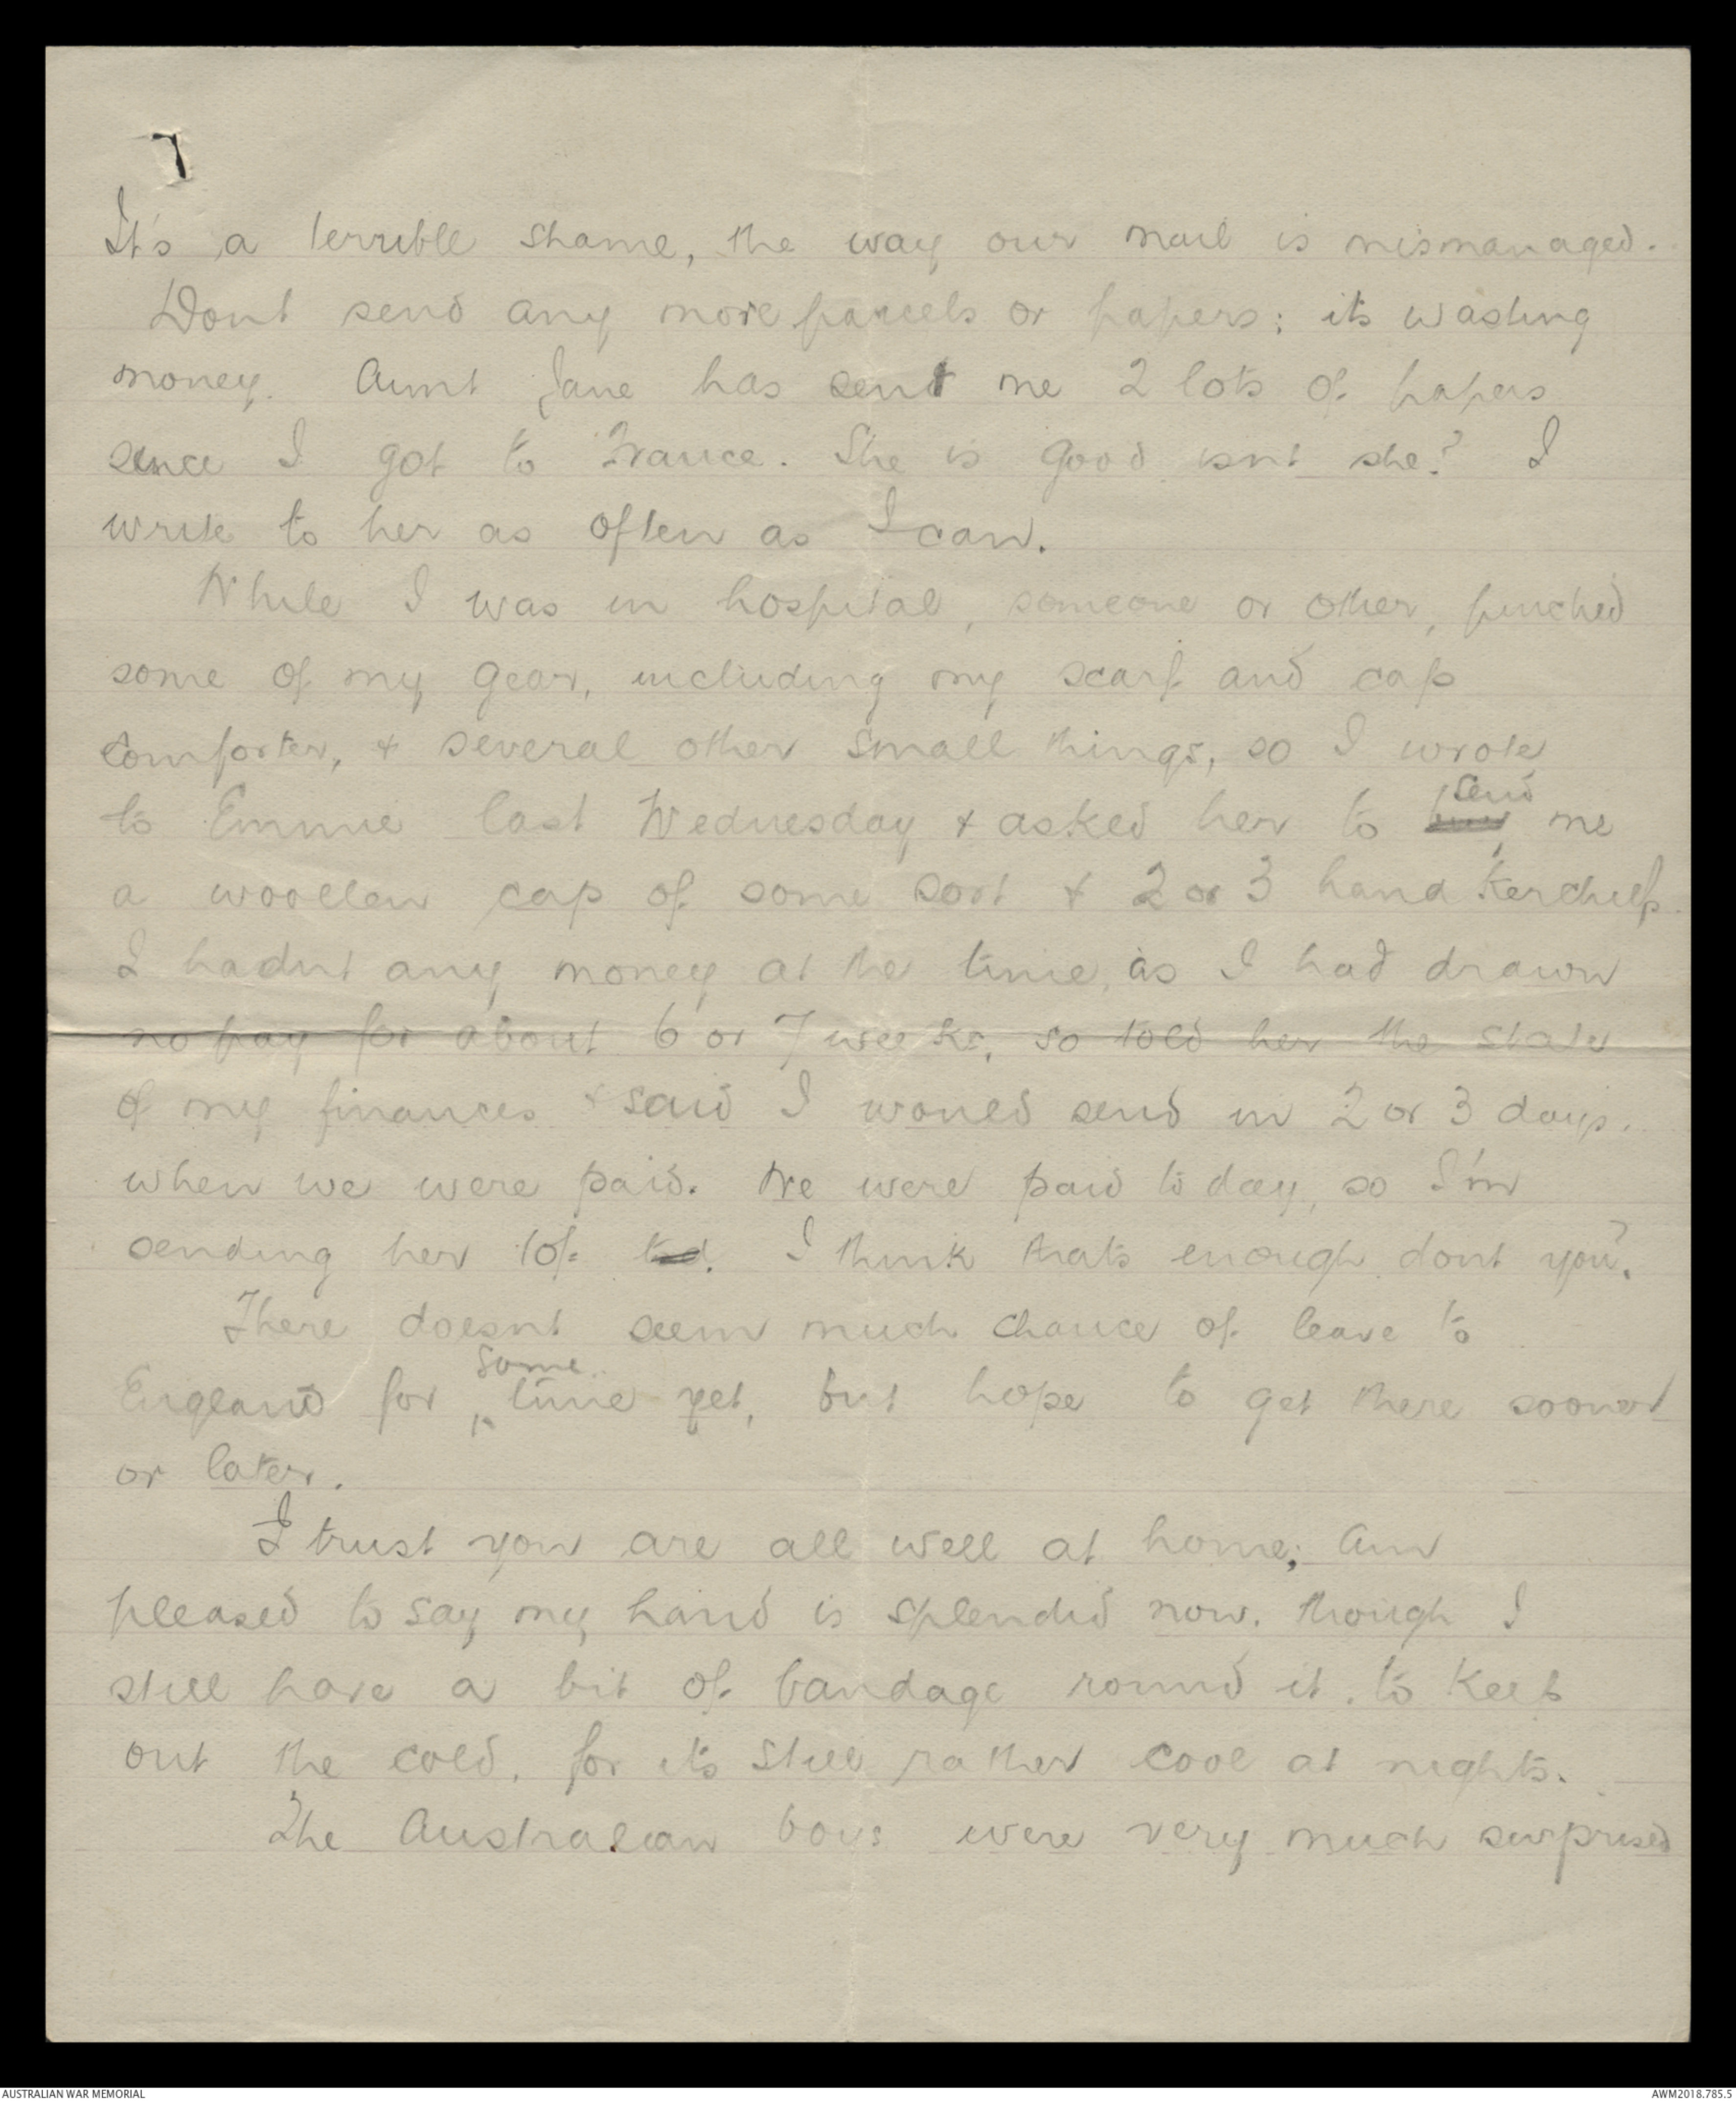 It's a terrible shame, the way our mail is mismanaged.
Dont send any more parcels or papers; its wasting
money. Aunt Jane has sent me 2 lots of papers
since I got to France. She is good isnt she? I
write to her as often as I can.
While I was in hospital, someone or other, pinched
some of my gear, including my scarf and cap
comforter, & several other small things, so I wrote
send
to Emmie last Wednesday & asked her to buy me
a woollen cap of some sort & 2 or 3 hand kerchiefs.
I hadnt any money at the time, as I had drawn
no pay for about 6 or 7 weeks, so told her the state
of my finances & said I would send in 2 or 3 days.
when we were paid. We were paid to day, so I'm
sending her 10/- I think thats enough dont you?
There doesnt seem much chance of leave to
some
England for time yet, but hope to get there sooner
or later.
I trust you are all well at home; am
pleased to say my hand is splendid now. though I
still have a bit of bandage round it. to keep
out the cold, for its still rather cool at nights.
The Australian boys were very much surprised
AUSTRALIAN WAR MEMORIAL
AWM2018.785.5